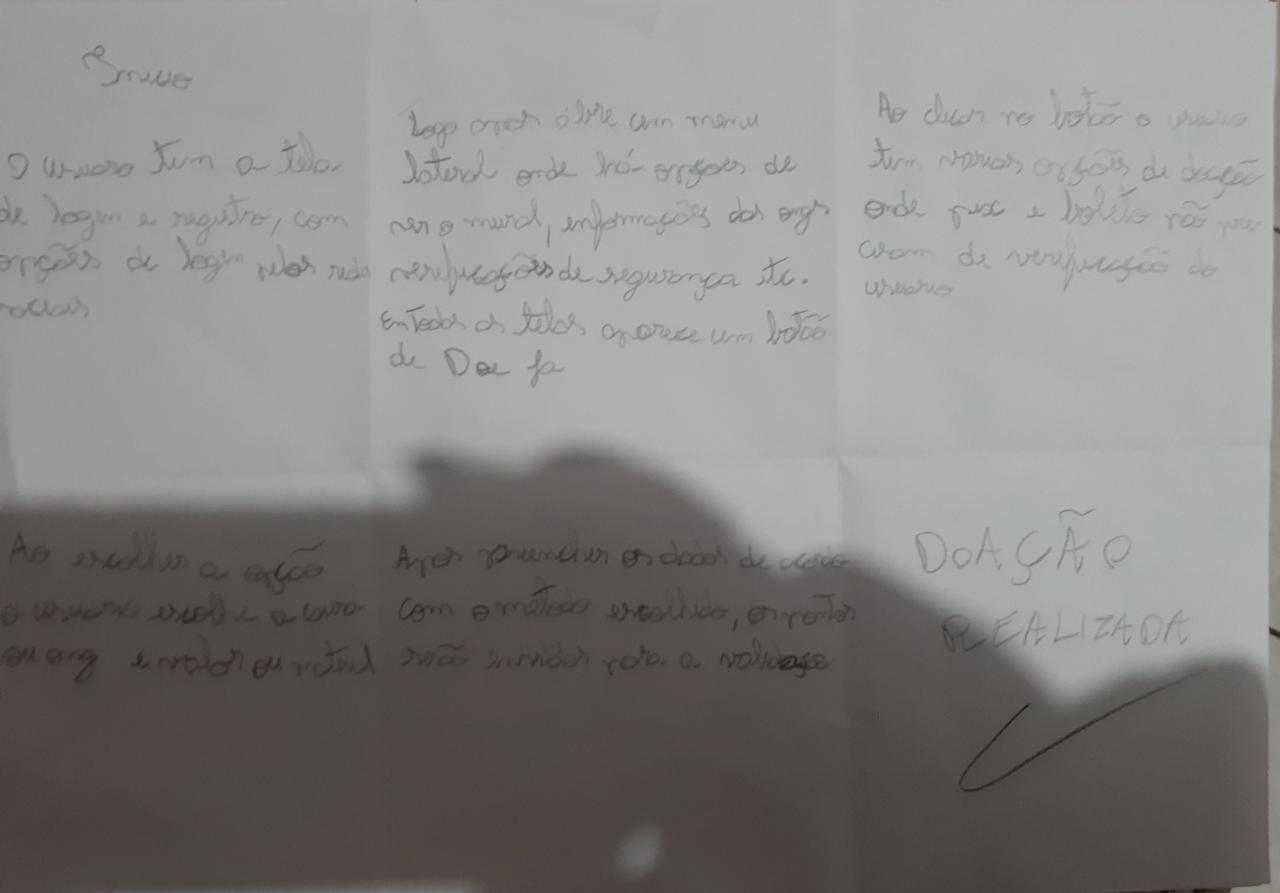 Início
O usuario tem a tela
de login e registro, com
opções de login pelas redes
sociais
Logo apos abre um menu
lateral onde há opções de
ver o mural, informações das ongs
verificações de segurança etc.
Em todas as telas aparece um botão
de Doe ja
Ao clicar no botão o usuario
tem varias opções de doação
onde pix e boleto não pre
cisam de verificação do
usuario
Ao escolher a opção
o usuario escolhe a causa
ou ong e valor ou material
Apos preencher os dados de acordo
com o metodo escolhido, os
serão enviados para a validação
DOAÇÃO
REALIZADA